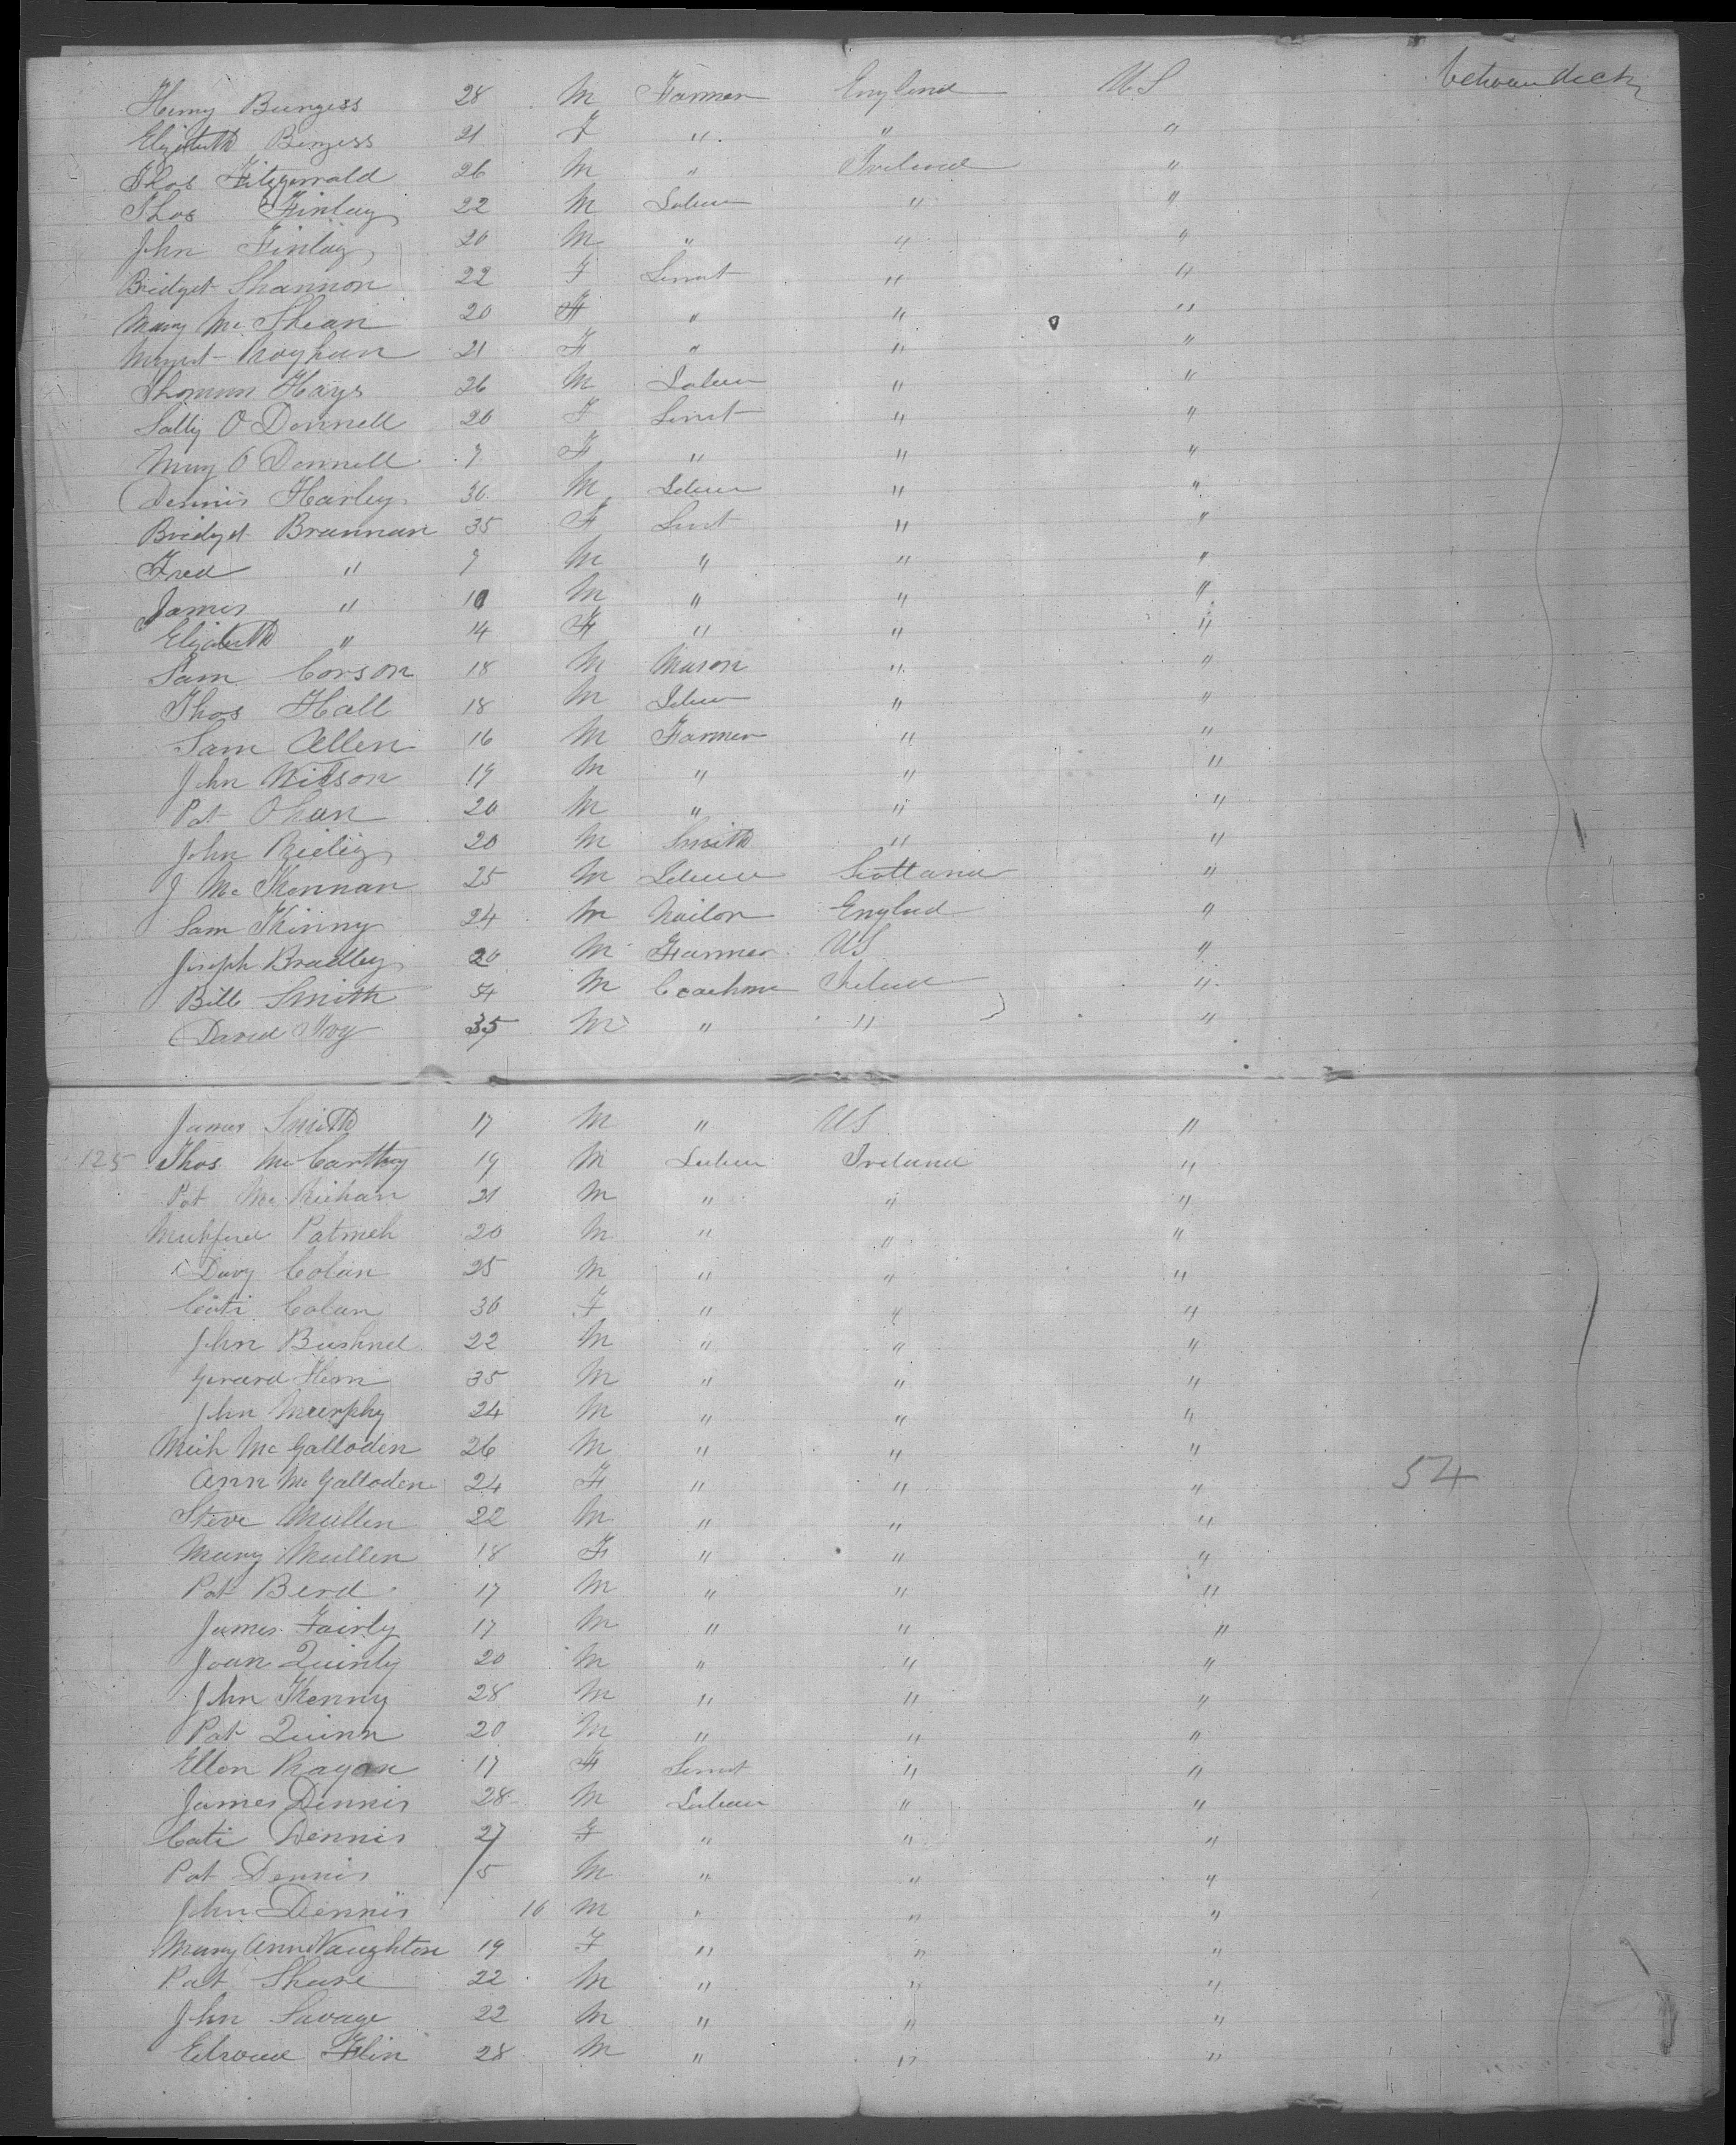 Henry Burgess 28 M Farmer England US between decks
Elizabeth Burgess 21 F " " "
Thos Fitzgerrald 26 M " Ireland "
Thos Finlay 22 M Labour " "
John Finlay 20 M " " "
Bridget Shannon 22 F Servnt " "
Mary Mc Shean 20 F " " "
Margret 21 F " " "
Thomas Hays 26 M Labour " "
Sally O Donnell 20 F Servt " "
Mary O Donnell 7 F " " "
Dennis Harley 30 M Labour " "
Bridget Brannan 35 F Servt " "
Fred " 7 M " " "
James " 10 M " " "
Elizabeth " 14 F " " "
Sam Corson 18 M Mason " "
Thos Hall 18 M Labour " "
Sam Allen 16 M Farmer " "
John Wilson 19 M " " "
Pat Ohan 20 M " " "
John Rieliy 20 M Smith " "
J Mc Kennan 25 M Labour Scottland "
Sam Kinny 24 M Nailor England "
Joseph Bradley 20 M Farmer US "
Bill Smith 54 M Coachman Ireland "
David 35 M " " "
James Smith 17 M " US "
125 Thos Mc Carthy 19 M Labour Ireland "
Pat Mc 21 M " " "
20 M " " "
Davy Colan 25 M " " "
Cati Colan 30 F " " "
John Bushnel 22 M " " "
Gerard 35 M " " "
John Murphy 24 M " " "
Mich Mc Galloden 26 M " " "
Ann Mc Galloden 24 F " " " 54
Steve Mullen 22 M " " "
Mary Mullen 18 F " " "
Pat Berd 17 M " " "
James Fairly 17 M " " "
Joan Quinly 20 M " " "
John Kenny 28 M " " "
Pat Quinn 20 M " " "
Ellen Ragan 17 F Servnt " "
James Dennis 28 M Labour " "
Cati Dennis 27 F " " "
Pat Dennis 5 M " " "
John Dennis 10 M " " "
Mary Ann Naughton 19 F " " "
Pat Share 22 M " " "
John Savage 22 M " " "
Edward Flin 28 M " " "